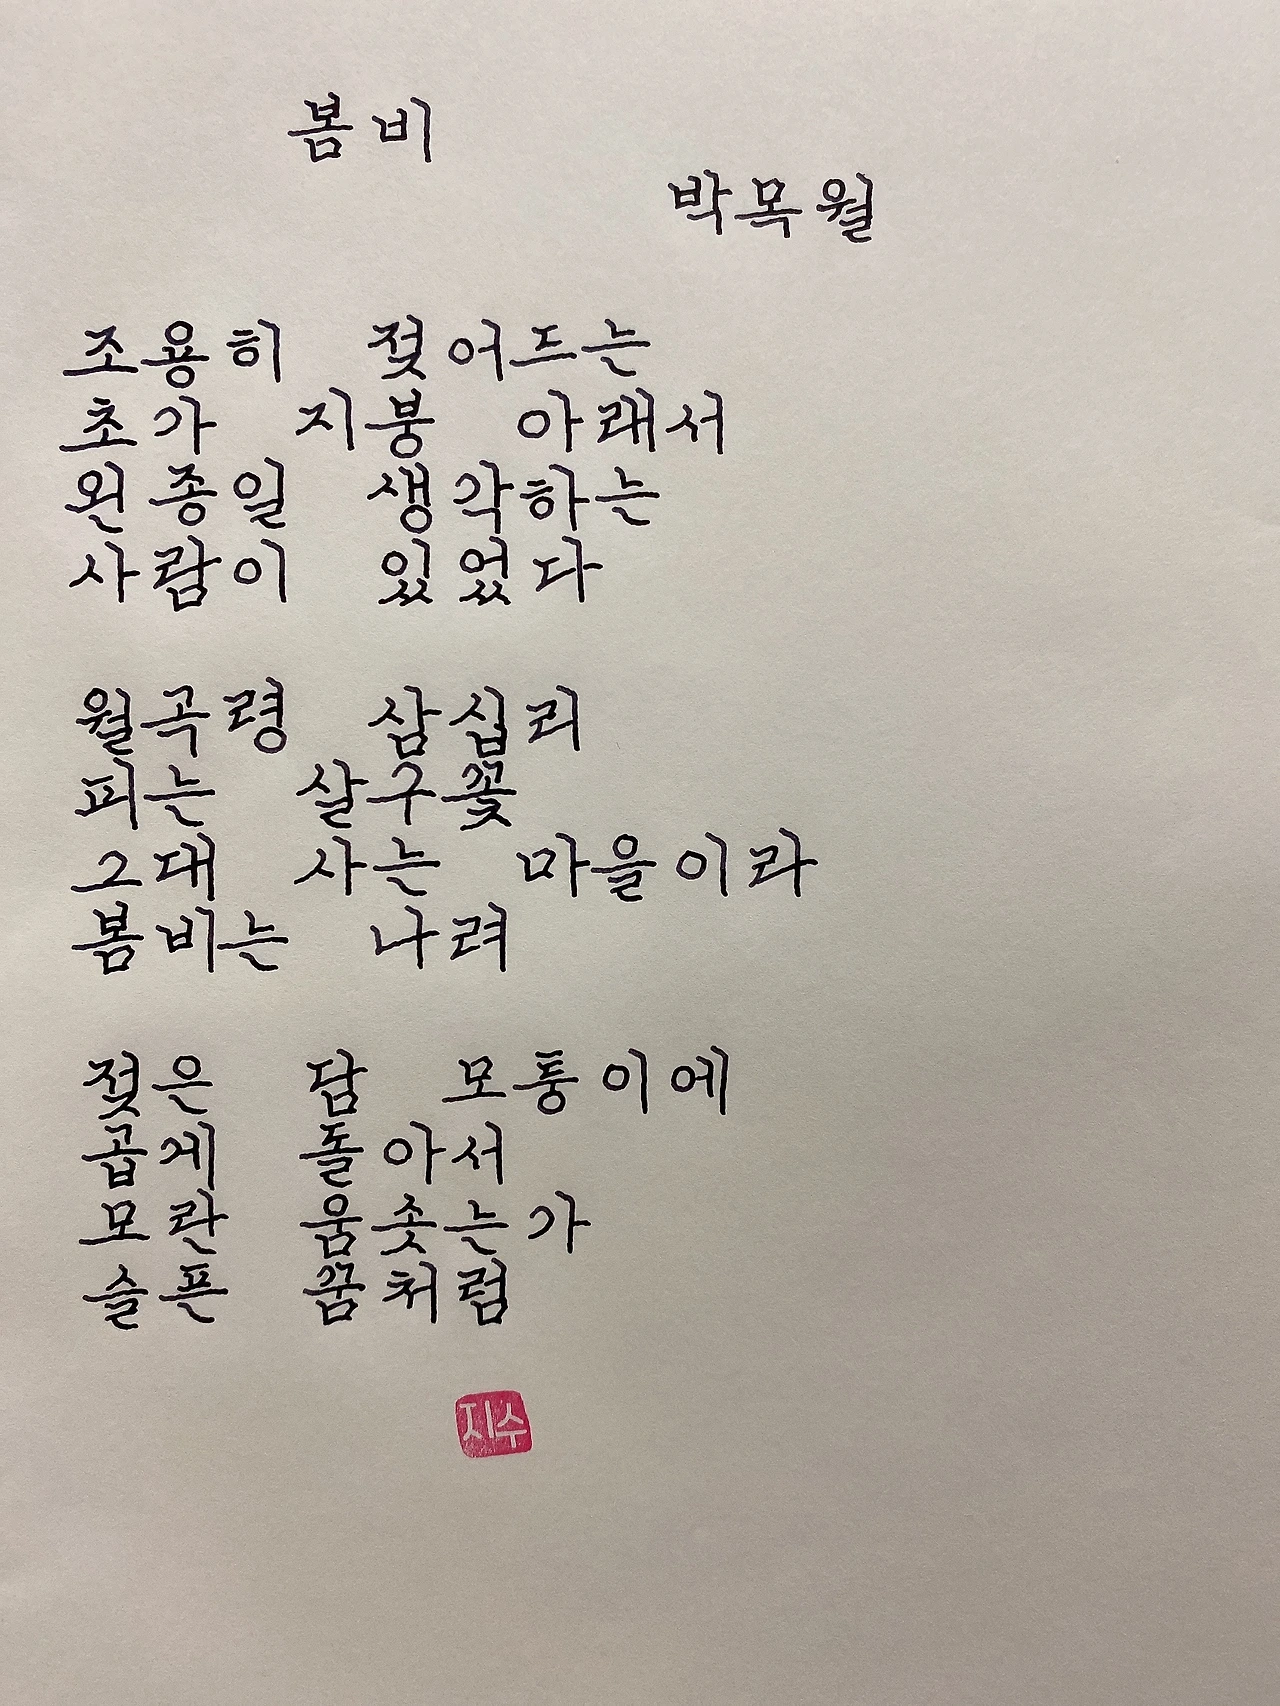 봄비
박목월
조용히 젖어드는
초가 지붕 아래서
왼종일 생각하는
사람이 있었다
월곡령 삼십리
피는 살구꽃
그대 사는 마을이라
봄비는 나려
젖은 담 모퉁이에
곱게 돌아서
모란 움솟는가
슬픈 꿈처럼
지수